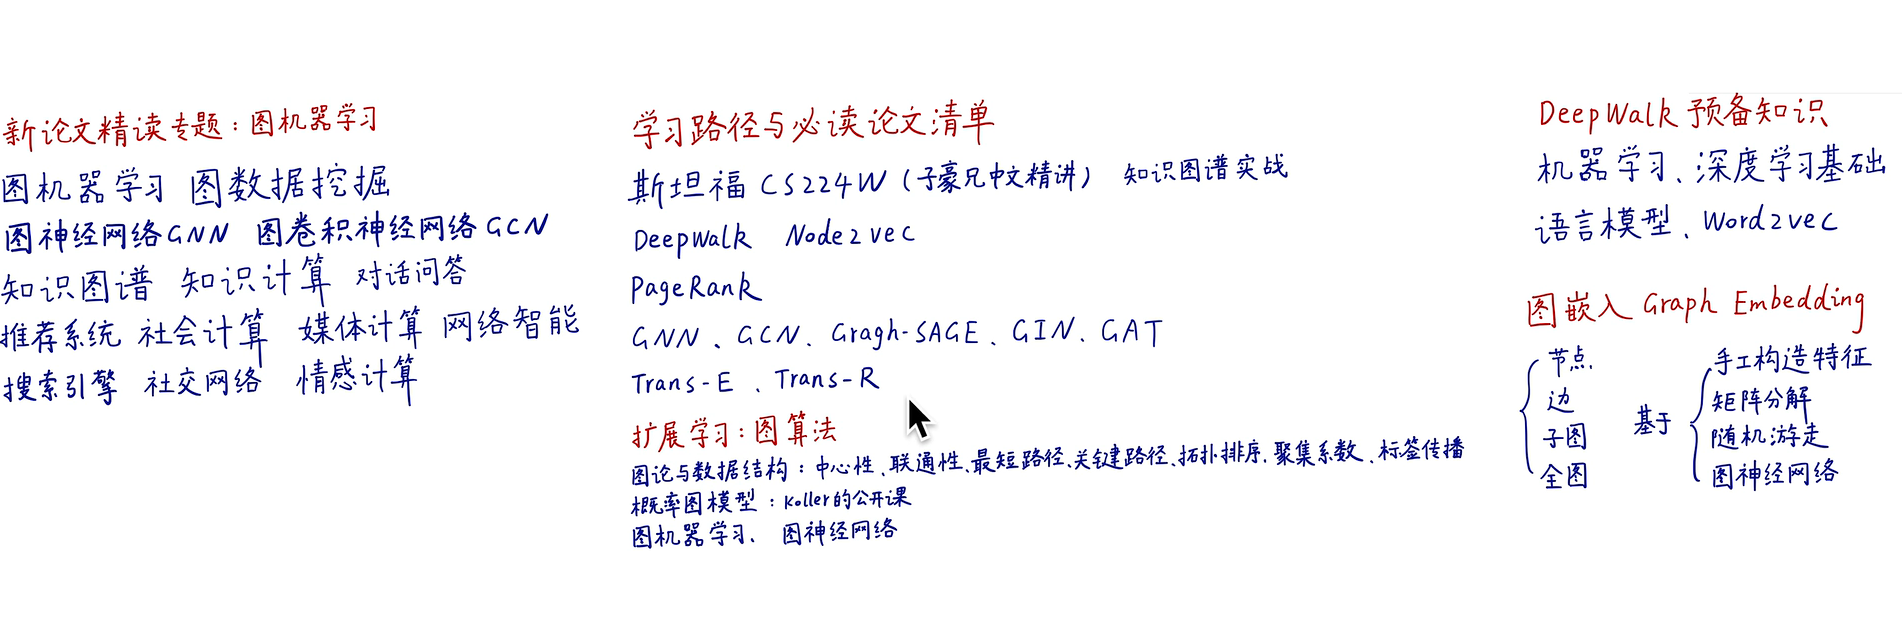 新论文精读专题：图机器学习
图机器学习 图数据挖掘
图神经网络GNN 图卷积神经网络GCN
知识图谱 知识计算 对话问答
推荐系统 社会计算 媒体计算 网络智能
搜索引擎 社交网络 情感计算
学习路径与必读论文清单
斯坦福CS224W（子豪兄中文精讲） 知识图谱实战
DeepWalk Node2vec
PageRank
GNN、GCN、Gragh-SAGE、GIN、GAT
Trans-E、Trans-R
扩展学习：图算法
图论与数据结构：中心性、联通性、最短路径、关键路径、拓扑排序、聚集系数、标签传播
概率图模型：Koller的公开课
图机器学习、图神经网络
DeepWalk 预备知识
机器学习、深度学习基础
语言模型、Word2vec
图嵌入 Graph Embedding
节点
边
子图
全图
基于
手工构造特征
矩阵分解
随机游走
图神经网络